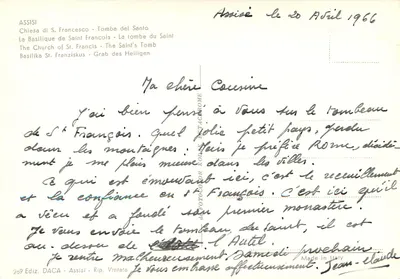 ASSISI
Chiesa di S. Francesco - Tomba del Santo
La Basilique de Saint François - La tombe du Saint
The Church of St. Francis - The Saint's Tomb
Basilika St. Franziskus - Grab des Heiligen
Assise le 20 Avril 1966
Ma chère Cousine
J'ai bien pensé à vous sur le tombeau
de St François. Quel joli petit pays, perdu
dans les montagnes. Mais je préfère Rome, décidé-
ment je me plais mieux dans les villes.
Ce qui est émouvant ici, c'est le recueillement
et la confiance en St François. C'est ici qu'il
a vécu et a fondé son premier monastère.
Je vous envoie le tombeau du Saint, il est
au dessous de l'Autel.
Je rentre malheureusement Samedi prochain
Je vous embrasse affectueusement. Jean-Claude
Ediz. DACA - Assisi - Rip. Vietata
Made in Italy